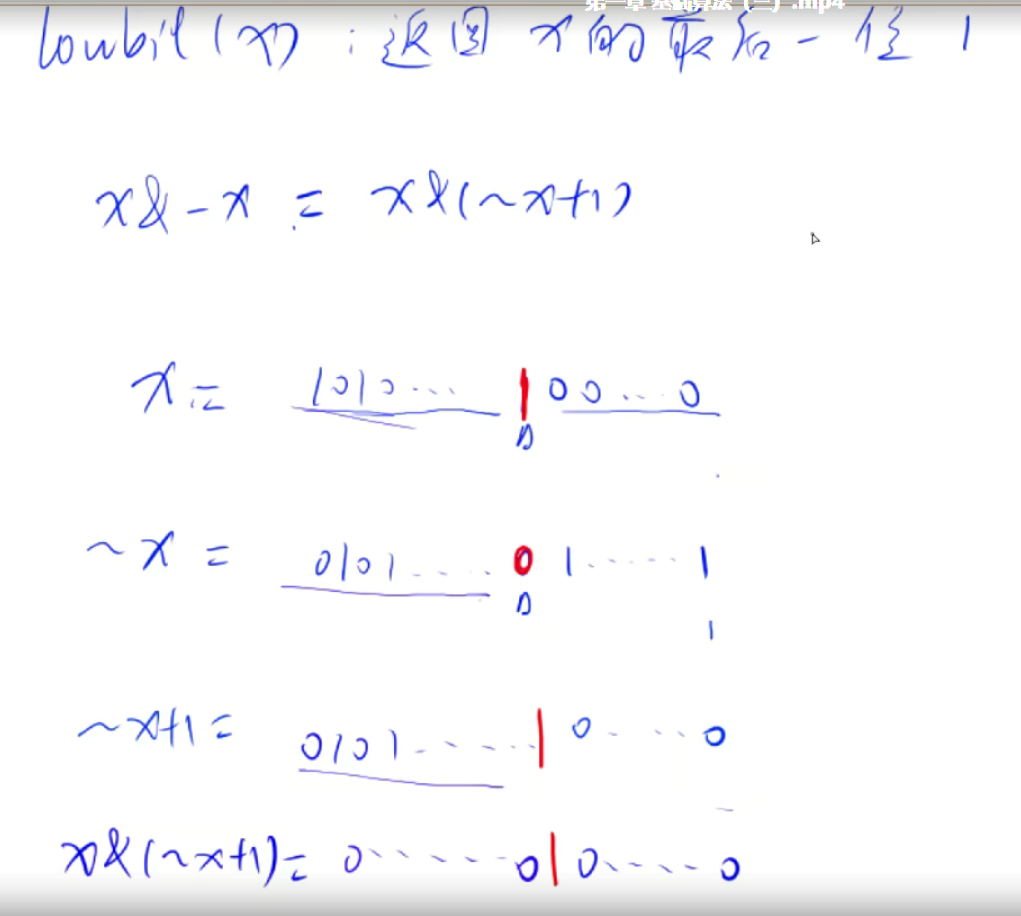 第一章 基础算法（二）.mp4
lowbit(x)：返回 x的最后一位1
x&-x = x&(~x+1)
x = 1010... 1 00...0
~x = 0101.... 0 1.....1
1
~x+1 = 0101..... 1 0....0
x&(~x+1) = 0.....0 1 0....0